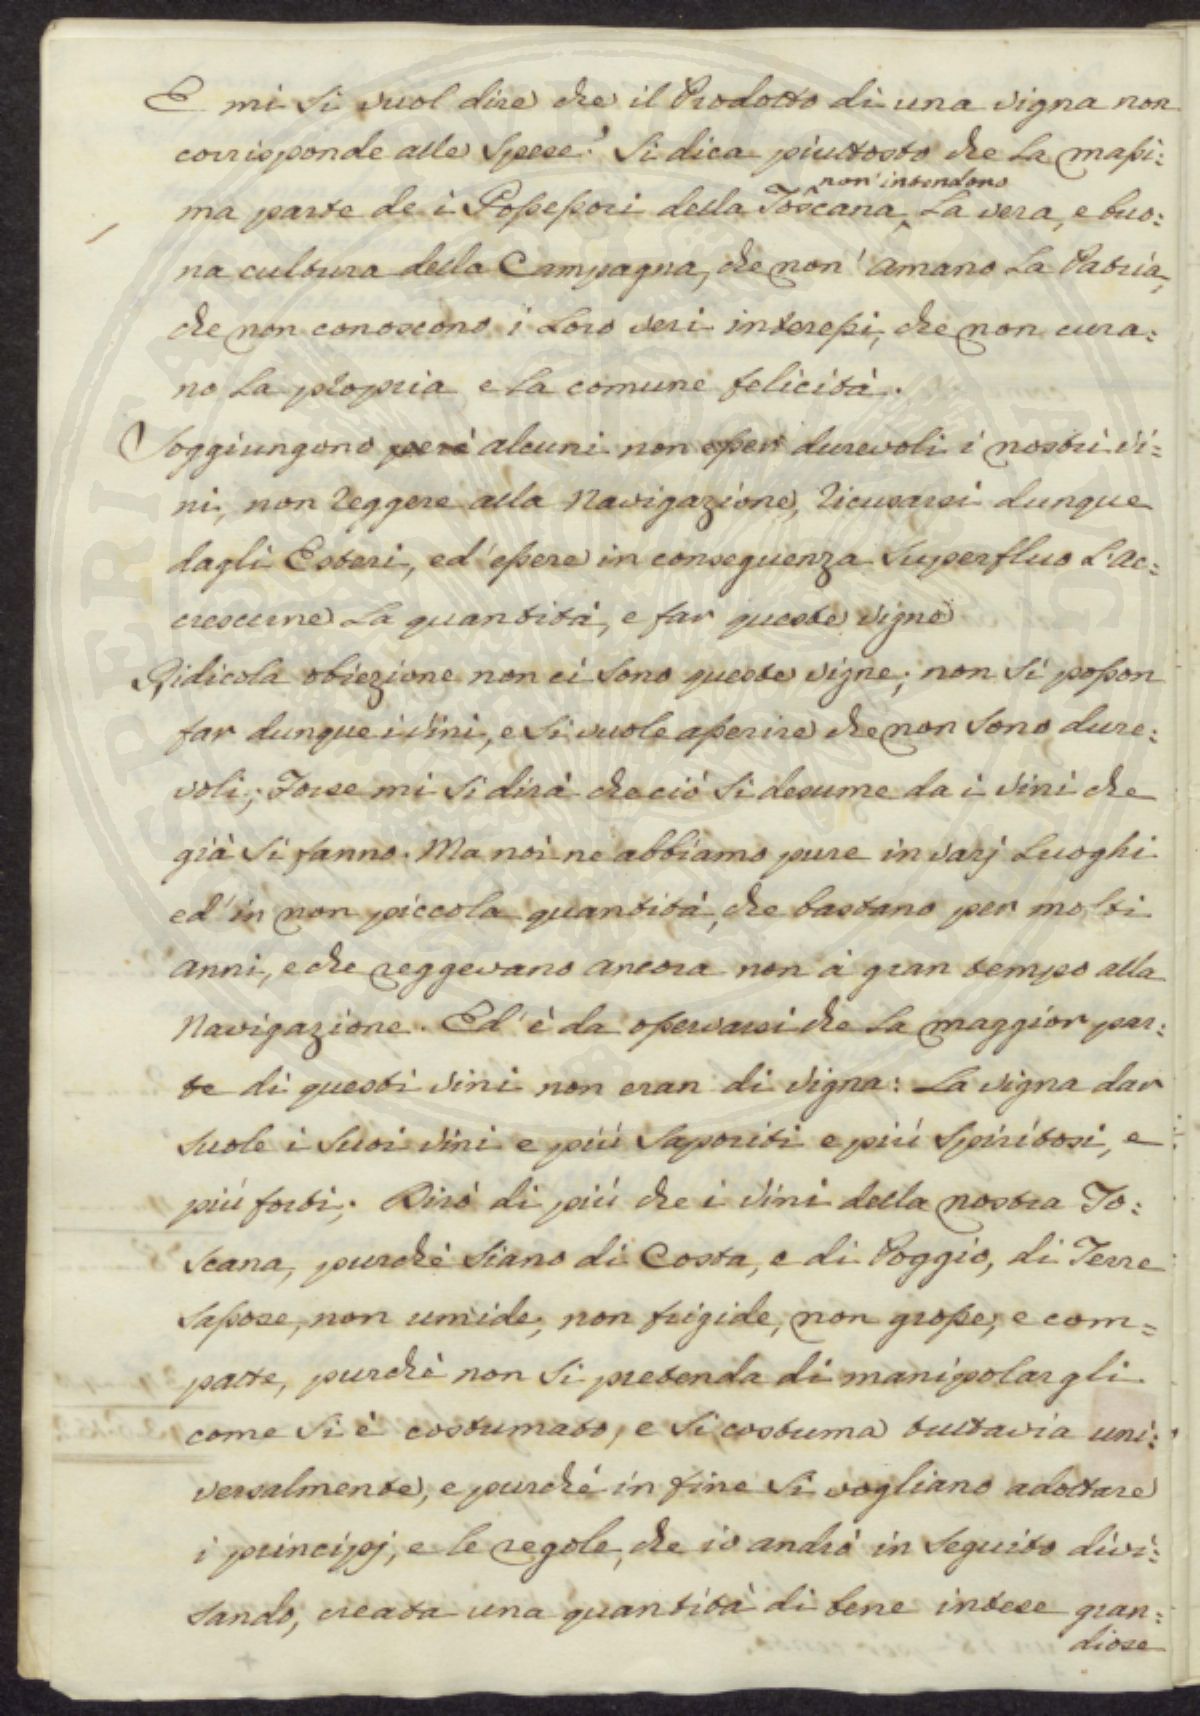 E mi si vuol dire che il Prodotto di una vigna non
corrisponde alle Spese? Si dica piuttosto che La massi:
non intendono
ma parte de i Possessori della Toscana, La vera, e buo:
na cultura della Campagna, che non' amano La Patria,
che non conoscono i Loro veri interessi, che non cura:
no La propria e La comune felicità.
Soggiungono però alcuni non esser durevoli i nostri vi:
ni, non reggere alla Navigazione, ricusarsi dunque
dagli Esteri, ed' essere in conseguenza Superfluo L'ac:
crescerne La quantità, e far queste vigne
Ridicola obiezione non ci sono queste vigne; non si posson
far dunque i vini, e si vuole asserire che non sono dure:
voli; Forse mi si dirà che ciò si desume da i vini che
già si fanno. Ma noi ne abbiamo pure in varj Luoghi
ed' in non piccola quantità, che bastano per molti
anni, e che reggevano ancora non à gran tempo alla
Navigazione. Ed' è da osservarsi che La maggior par:
te di questi vini non eran di vigna: La vigna dar
suole i suoi vini e più saporiti e più spiritosi, e
più forti; Dirò di più che i vini della nostra To:
scana, purchè siano di Costa, e di Poggio, di Terre
sassose, non umide, non frigide, non grosse, e com=
patte, purchè non si pretenda di manipolargli
come si è costumato, e si costuma tuttavia uni:
versalmente, e purchè in fine si vogliano adottare
i principj, e le regole, che io andrò in seguito divi:
sando, creata una quantità di bene intese gran:
diose
SPERITAT